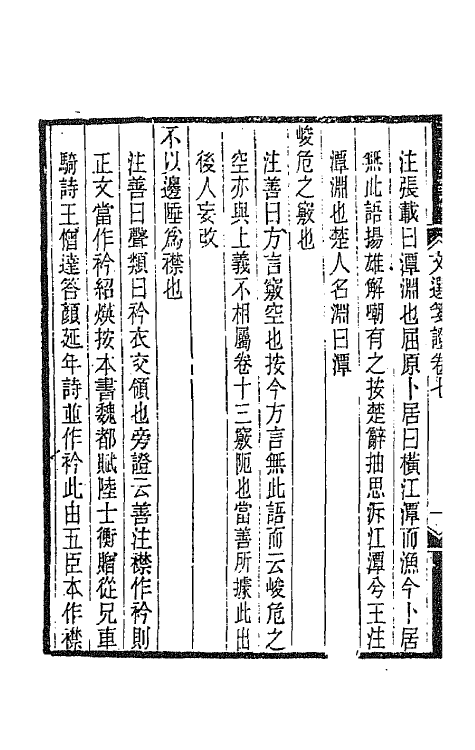 文選箋證卷七
注張載曰潭淵也屈原卜居曰橫江潭而漁今卜居
無此語揚雄解嘲有之按楚辭抽思泝江潭兮王注
潭淵也楚人名淵曰潭
峻危之竅也
注善曰方言竅空也按今方言無此語而云峻危之
空亦與上義不相屬卷十三竅阸也當善所據此出
後人妄改
不以邊陲為襟也
注善曰聲類曰衿衣交領也旁證云善注襟作衿則
正文當作衿紹煐按本書魏都賦陸士衡贈從兄車
騎詩王僧達答顏延年詩並作衿此由五臣本作襟